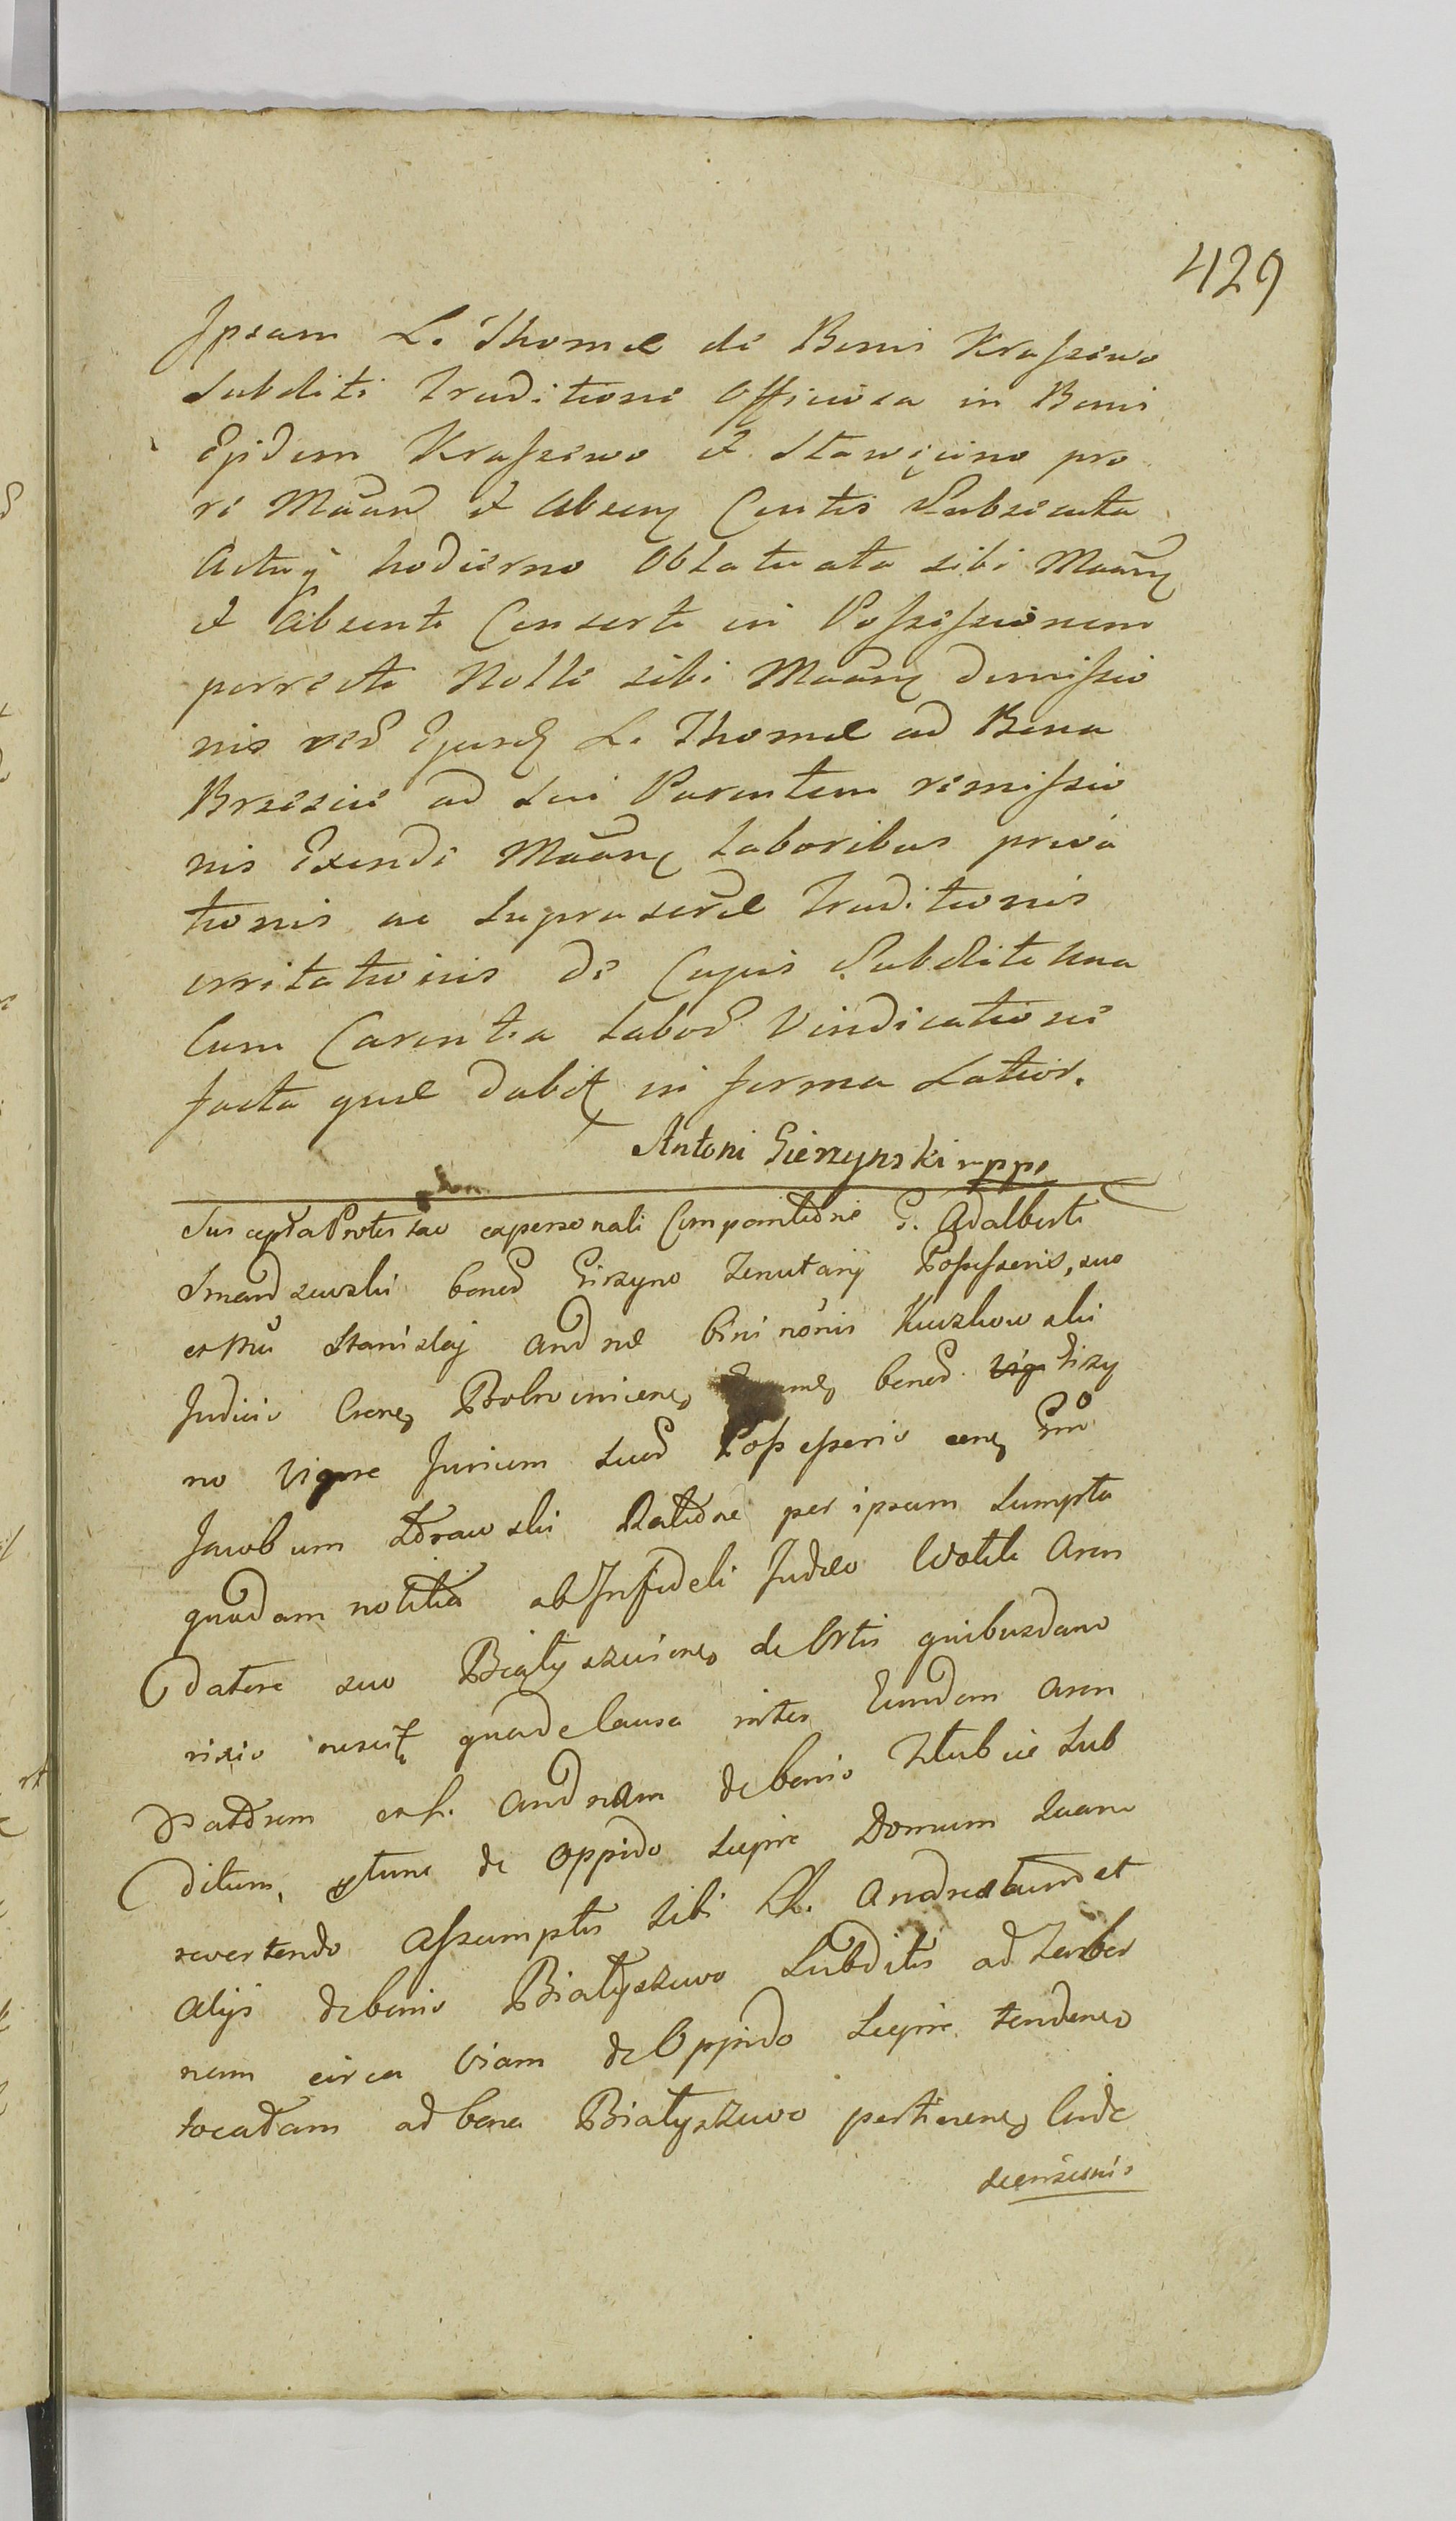 429
Ipsam L. Thomæ de Bonis Kraszewo
Subditi Traditione Officiosa in Bonis
Ejsdem Kraszewo et Stawięcino pro
ri Maand et Absen Contis Subsecuta
Actuq hodierno Oblatu ata sibi Maan
et Absente Conserte in Possessionem
porrecta Nolle sibi Maan demissio
nis red Ejusd L. Thomæ ad Bona
Brzezie ad Sui Parentem remissio
nis Exendi Maan Laboribus priva
tionis ac Suprascræ Traditionis
irritationis de Cujus Subditi Una
Cum Carentia Labor Vindicatione
facta quæ dabit in forma Latior.
Antoni Gierzynski mpp
Suscepta Protestao ex personali Comparitione G. Adalberti
Smardzewski bonor Girzyno Tenutarij Possessoris, suo
et Mci Stanislaj Andreæ bininonis Kuczkowski
Judicis Crene Bobrownicen bonor Vig Girzy
no Vigore Jurium suor Possessoris cen Gm
Jacobum Zdrawski Ratione per ipsum Sumpta
quadam notitia ab Infideli Judæo Wolek Aren
datore suo Białyszewiens de Ortis quibusdam
rixis nescit qua de Causa inter Eundem Aren
datorem et L. Andream de bonis Zlubie Sub
ditum, et tunc de Oppido Sierpc Domum Suam
revertendo Assumptis sibi LL. Andrea et
Alijs de bonis Białyszewo Subditis ad Taber
nam circa Viam de Oppido Sierpc tendens
locatam ad bona Białyszewo pertinens Inde